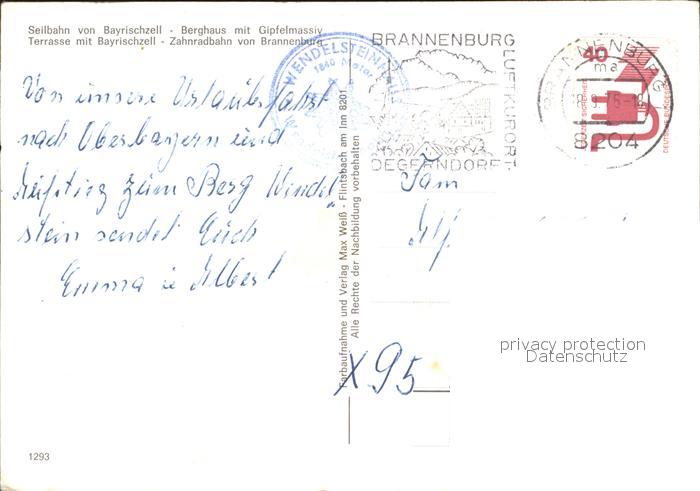 Seilbahn von Bayrischzell - Berghaus mit Gipfelmassiv
Terrasse mit Bayrischzell - Zahnradbahn von Brannenburg
Von unsere Urlaubsfahrt
nach Oberbayern und
zum Berg Wendel
stein sendet Euch
Emma u Albert
1293
Farbaufnahme und Verlag Max Weiß - Flintsbach am Inn 8201
Alle Rechte der Nachbildung vorbehalten
WENDELSTEINHAUS
1840 Meter
BRANNENBURG
LUFTKURORT
DEGERNDORF
BRANNENBURG
ma
8204
40
DEUTSCHE BUNDESPOST
Fam
X95
privacy protection
Datenschutz